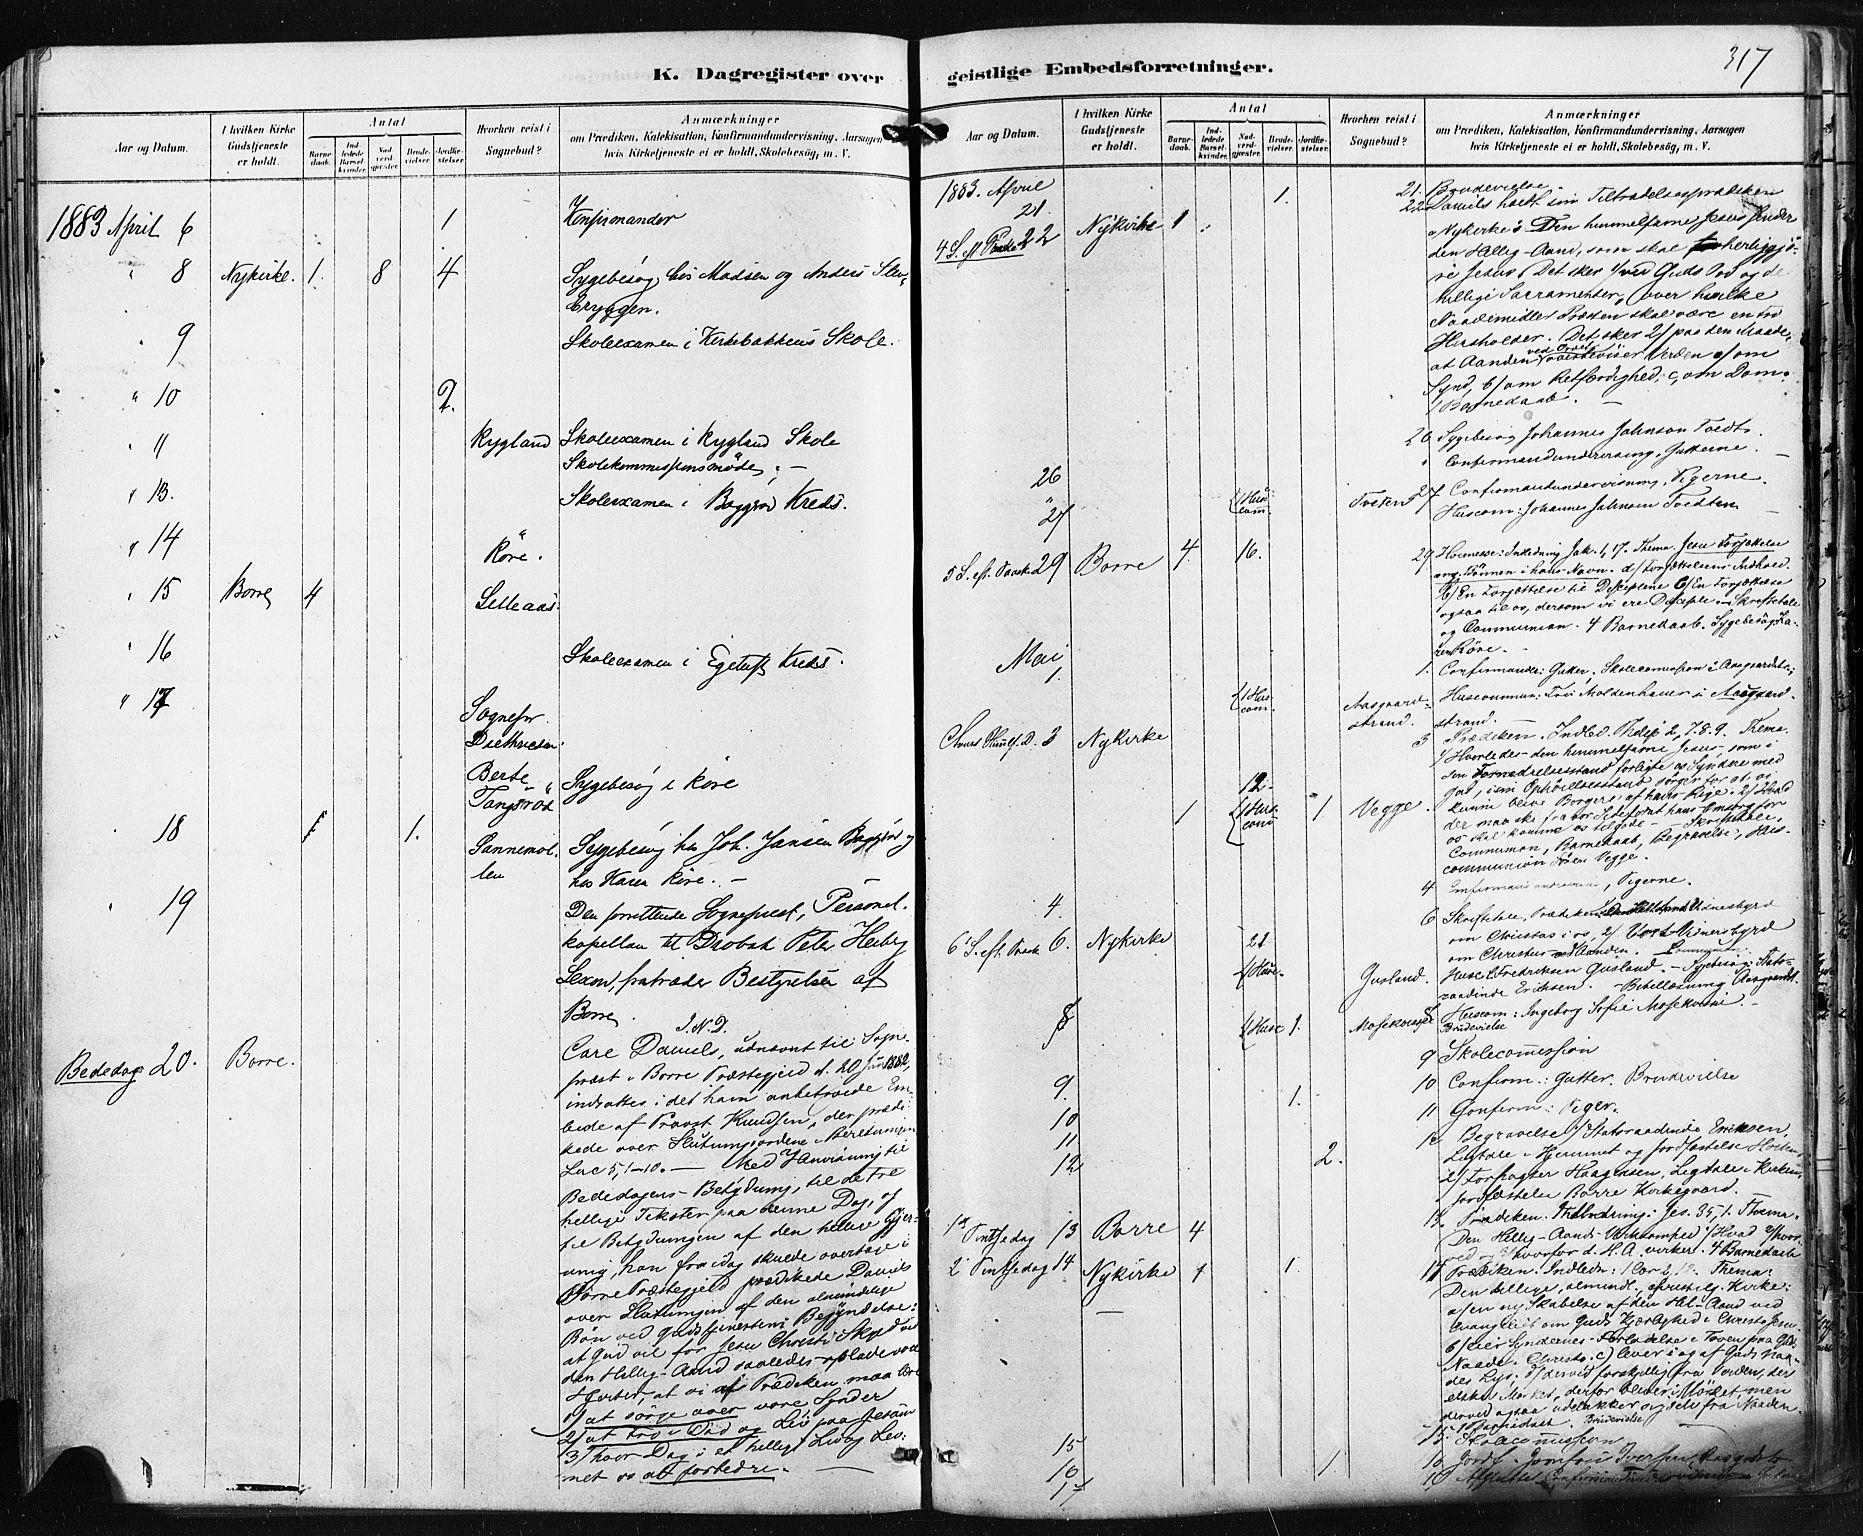 K. Dagregister over geistlige Embedsforretninger.
317
Aar og Datum.
I hvilken Kirke Gudstjeneste er holdt.
Antal
Barne-daab.
Ind-ledede Barsel-kvinder.
Nad-verd-gjæster.
Brude-vielser.
Jordfæ-stelser.
Hvorhen reist i Sognebud?
Anmærkninger
om Prædiken, Katekisation, Konfirmandundervisning, Aarsagen
hvis Kirketjeneste ei er holdt, Skolebesøg, m. V.
1883 April 6 1 Konfirmander
" 8 Nykirke. 1. 8 4 Sygebesøg hos Madsen og Anders
bryggen.
" 9 Skoleexamen i Kirkebakkens Skole.
" 10 2.
" 11 Rygland Skoleexamen i Rygland Skole
Skolekommissionsmøde. –
" 13. Skoleexamen i Baggerød Kreds.
" 14 Røre.
" 15 Borre 4 Lilleaas.
" 16 Skoleexamen i Kreds.
" 17 Sognepr.
Berte Sygebesøg i Røre
Tangsrød
" 18 1 1. Sannemol- Sygebesøg hos Joh. Jansen og
len hos Karen Røre. –
" 19 Den forrettende Sogneprest, Personel-
kapellan til Provst Peter
fratræder Bestyrelsen af
Borre.
J. N. D.
Bededag 20. Borre. Daniels, udnævnt til Sogne-
præst i Borre Præstegjeld d. 20 Juni 1882,
indsattes i det ham anbetroede Em-
bede af Provst Knudsen, der prædi-
kede over Slutningsordene i Beretningen
Luc 5, 1-10. – Med Henvisning til
Bededagens Betydning, til de tre
hellige Tekster paa denne Dag, og
til Betydningen af den hellige Gjer-
ning, han fra idag skulde overtage i
Borre Præstegjeld prædikede Daniels
over Slutningen af den almindelige
Bøn ved Gudstjenestens Begyndelse:
at Gud vil for Jesu Christi Skyld ved
den Hellig-Aand saaledes oplade vore
Hjerter, at vi af Prædiken maa lære
1/ at sørge over vore Synder
2/ at tro i Død og Liv paa Jesum
3/ hver Dag i et helligt Liv og Lev-
net os at forbedre. –
Aar og Datum.
I hvilken Kirke Gudstjeneste er holdt.
Antal
Barne-daab.
Ind-ledede Barsel-kvinder.
Nad-verd-gjæster.
Brude-vielser.
Jordfæ-stelser.
Hvorhen reist i Sognebud?
Anmærkninger
om Prædiken, Katekisation, Konfirmandundervisning, Aarsagen
hvis Kirketjeneste ei er holdt, Skolebesøg, m. V.
1883. April
21. 1. 21. Brudevielse.
4 S. eft. Paaske 22 Nykirke 1 22. Daniels holdt sin Tiltrædelsesprædiken
i Nykirke: Den himmelfarne Jesus sender
den Hellig-Aand, som skal herliggjø-
re Jesus. Det sker 1/ ved Guds Ord og de
hellige Sacramenter, over hvilke
Naademidler Præsten skal være en tro
Husholder. Det sker 2/ paa den Maade,
at Aanden ved Ordet overbeviser Verden a/ om
Synd, b/ om Retfærdighed, c/ om Dom.
1 Barnedaab. –
26 26 Sygebesøg Johannes Johnsen Tvedt.
" Confirmandundervisning, Gutterne.
" 27 1 Hus-com. Tveten 27 Confirmandundervisning, Pigerne.
Huscom: Johannes Johnsen Tvedten
5 S. eft. Paaske 29 Borre 4. 16. 29 Høimesse: Indledning Jak. 1, 17. Thema. Jesu Forjættelse
ang. Bønnen i hans Navn. a/ Forjættelsens Indhold.
b/ En Forjættelse til Disciplene c/ En Forjættelse
ogsaa til os, dersom vi ere Disciple. – Skriftetale
og Communion. 4 Barnedaab. Sygebesøg, Ka-
ren Røre. –
Mai 1 1 Hus-com. Aasgaard-strand. 1. Confirmander: Gutter. Skolecommission i Aasgaardstr.;
Huscommun: Fru Moldenhauer i Aasgaard-
strand. –
Christi Himlf. D. 3 Nykirke 12 3 Prædiken. Indled. Philip 2, 7. 8. 9. Thema
1/ Hvorledes den himmelfarne Jesus, som i
sin Fornedrelsesstand forligte os Syndere med
Gud, i sin Ophøielsesstand sørger for at vi
kunne blive Borgere af hans Rige. 2/ Hvad
der maa ske fra vor Side forat hans Omsorg for
os skal komme os tilgode – Skriftetale,
1 1 Hus-com 1 Vegge. Communion, Barnedaab, Begravelse, Hus-
communion Søren Vegge.
4. 4 Confirmandundervisn, Pigerne.
6 S. eft. Paaske 6. Nykirke 21 6 Skriftetale, Prædiken: Vidnesbyrd
om Christus i os, 2/ Vort Vidnesbyrd
om Christus ved Aanden. Communion.
1 Husc. Gusland. Husc. Fredriksen Gusland. – Sygebesøg: Stats-
raadinde Eriksen. – Bibellæsning Aasgaardst.
8 1 Husc 1. Mosekvoen 8 Huscom: Ingeborg Sofie Mosekvoen –
Brudevielse
9. 9 Skolecommission
10 1. 10 Confirm.: Gutter. Brudevielse
11 11 Confirm: Piger.
12 2. 12 Begravelse 1/ Statsraadinde Eriksen,
Ligtale i Hjemmet og Jordfæstelse Horten
2/ Forpagter Haagensen, Ligtale i Kirken,
Jordfæstelse Borre Kirkegaard.
1ste Pintsedag 13 Borre 4 13. Prædiken. Indledning: Jes. 35, 1. Thema.
Den Hellig-Aands Virksomhed 1/ Hvad 2/ hvor-
ved og 3/ hvorfor d. H. A. virker. 4 Barnedaab
2. Pintsedag 14 Nykirke 1 1. 14 Prædiken: Indledn: 1 Cor 2, 12. Thema:
Den hellige, almindl. christelig Kirke:
a/ en ny Skabelse af den Hel-Aand ved
Evangeliet om Guds Kjærlighed i Christo Jesu
b/ eier Syndernes Forladelse i Troen paa Guds
Naade i Christo. c/ lever i og af Guds Naa-
des Lys; d/ derved forskjellig fra Verden, der
elsker Mørket, derfor bliver i Mørket men
derved ogsaa udelukker sig selv fra Naaden.
1 Barnedaab. Brudevielse
15 15 Skolecommission
16 1 16 Jordf. Jomfru Iversen, Aasgdstr.
17